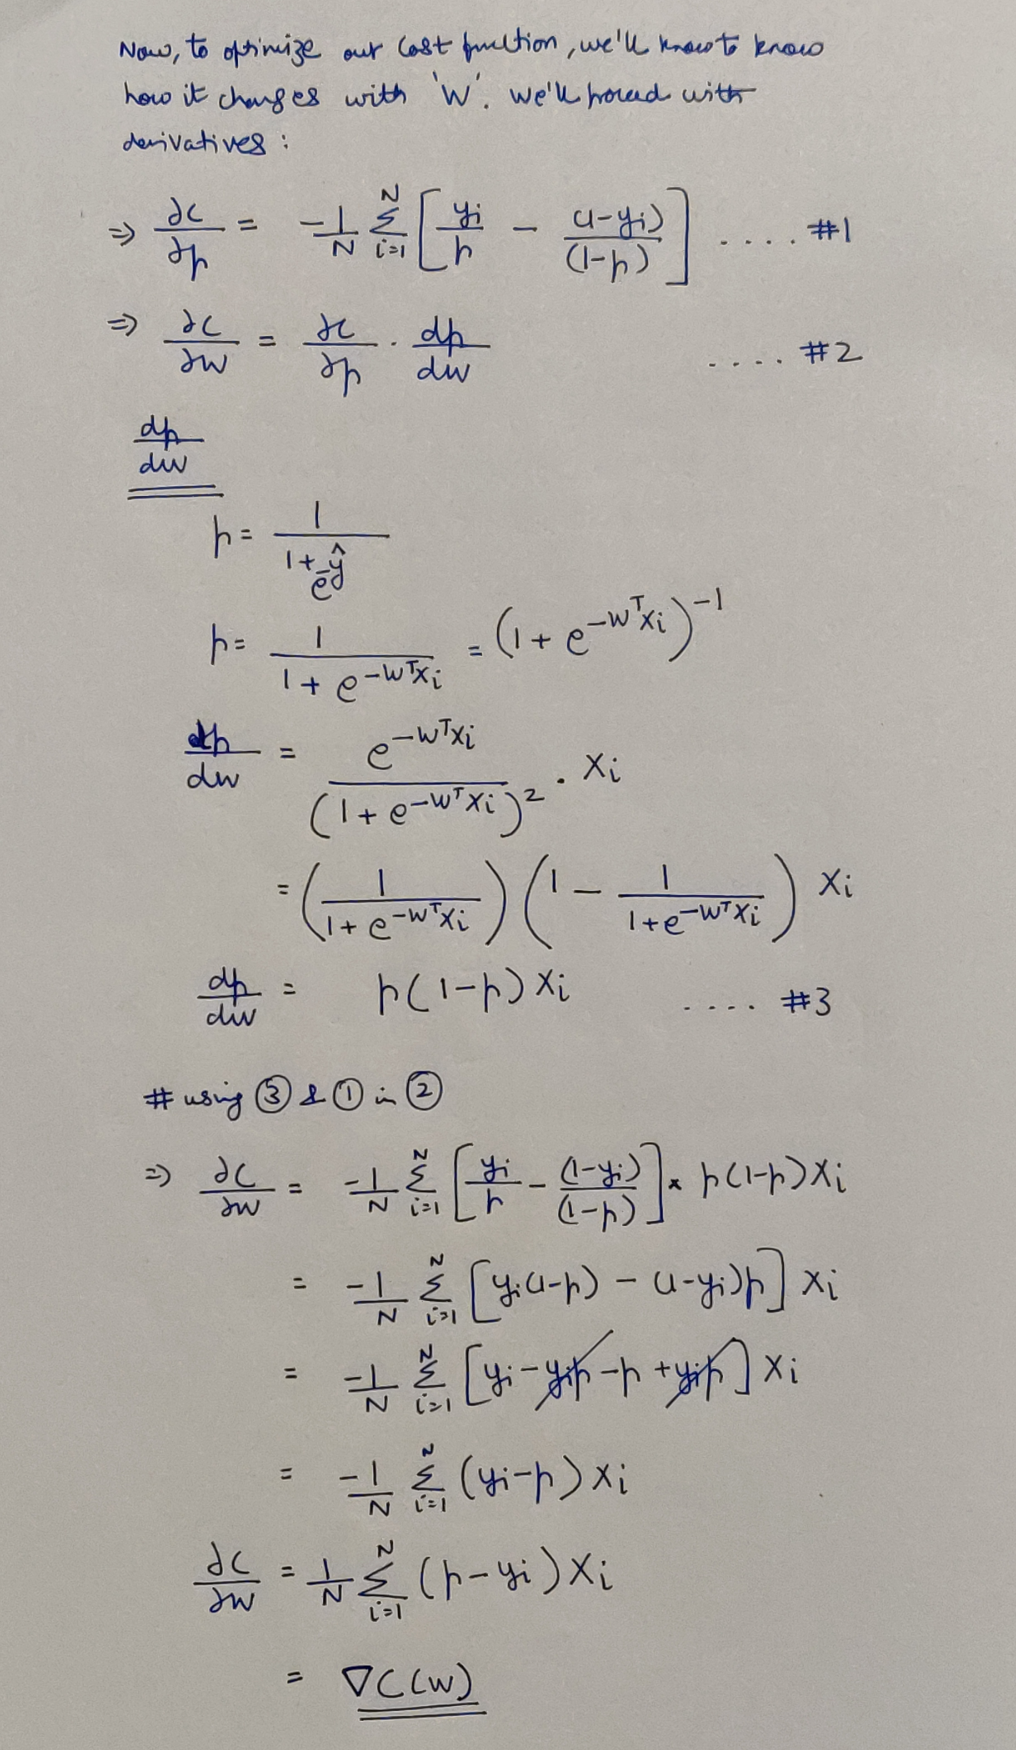 Now, to optimize our cost function, we'll know to know
how it changes with 'W'. We'll proceed with
derivatives :
⇒ ∂C/∂p = -1/N Σ_{i=1}^{N} [ y_i/p - (1-y_i)/(1-p) ] .... #1
⇒ ∂C/∂W = ∂C/∂p · dp/dW .... #2
dp/dW
p = 1/(1+e^{-ŷ})
p = 1/(1+e^{-W^T X_i}) = (1+e^{-W^T X_i})^{-1}
dp/dW = e^{-W^T X_i}/(1+e^{-W^T X_i})^2 . X_i
= (1/(1+e^{-W^T X_i})) (1 - 1/(1+e^{-W^T X_i})) X_i
dp/dW = p(1-p) X_i .... #3
# using ③ & ① in ②
⇒ ∂C/∂W = -1/N Σ_{i=1}^{N} [ y_i/p - (1-y_i)/(1-p) ] * p(1-p) X_i
= -1/N Σ_{i=1}^{N} [ y_i(1-p) - (1-y_i)p ] X_i
= -1/N Σ_{i=1}^{N} [ y_i - y_ip - p + y_ip ] X_i
= -1/N Σ_{i=1}^{N} (y_i-p) X_i
∂C/∂W = 1/N Σ_{i=1}^{N} (p-y_i) X_i
= ∇C(W)